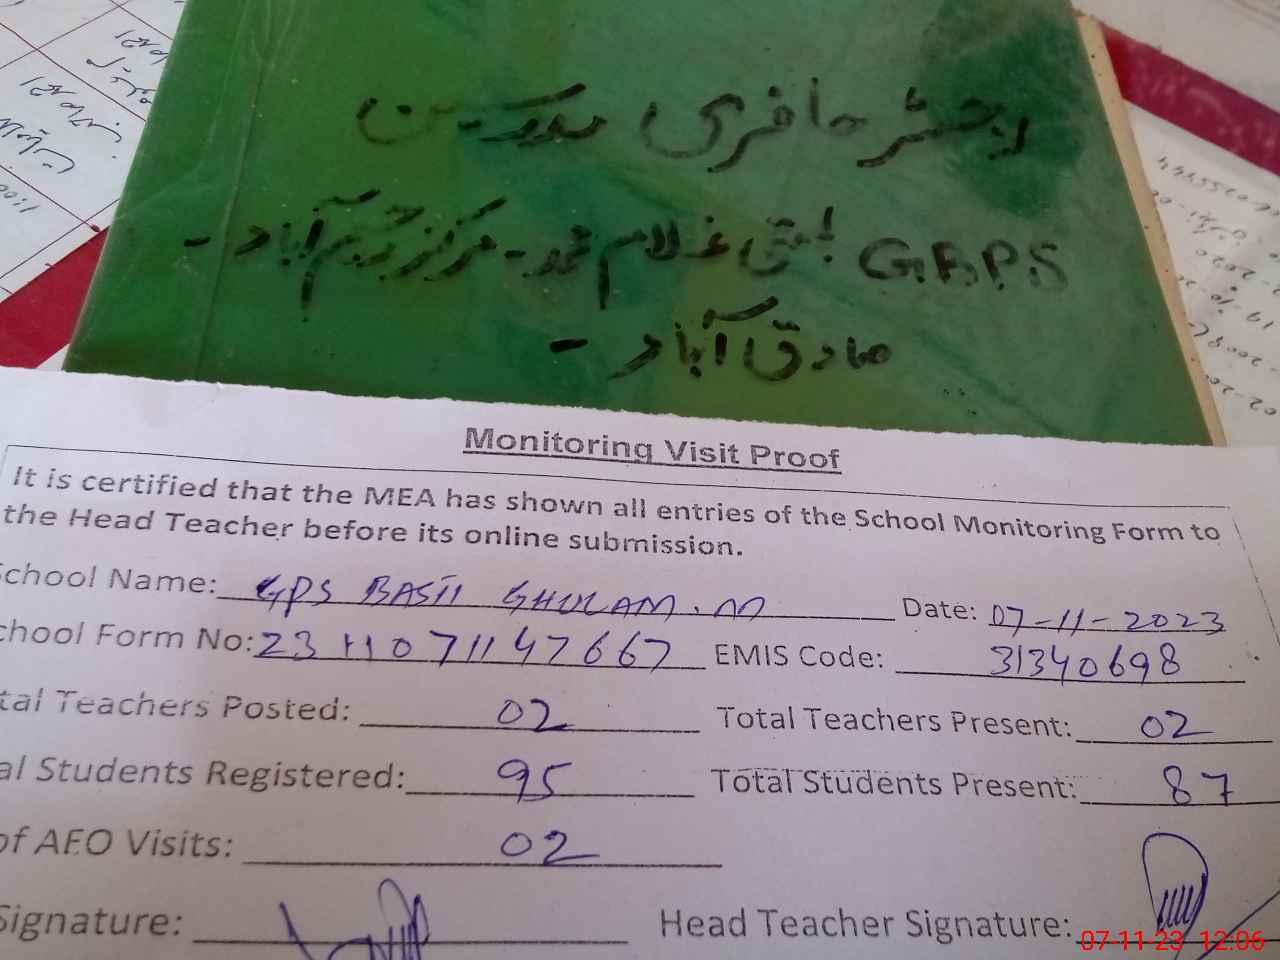 رجسٹر حاضری مدرسین
GBPS بستی غلام محمد - مرکز رحیم آباد -
صادق آباد -
Monitoring Visit Proof
It is certified that the MEA has shown all entries of the School Monitoring Form to
the Head Teacher before its online submission.
School Name: GPS BASTI GHULAM. M Date: 07-11-2023
School Form No: 2311071147667 EMIS Code: 31340698
tal Teachers Posted: 02 Total Teachers Present: 02
al Students Registered: 95 Total Students Present: 87
of AEO Visits: 02
Signature: Head Teacher Signature:
07-11-23 12:06